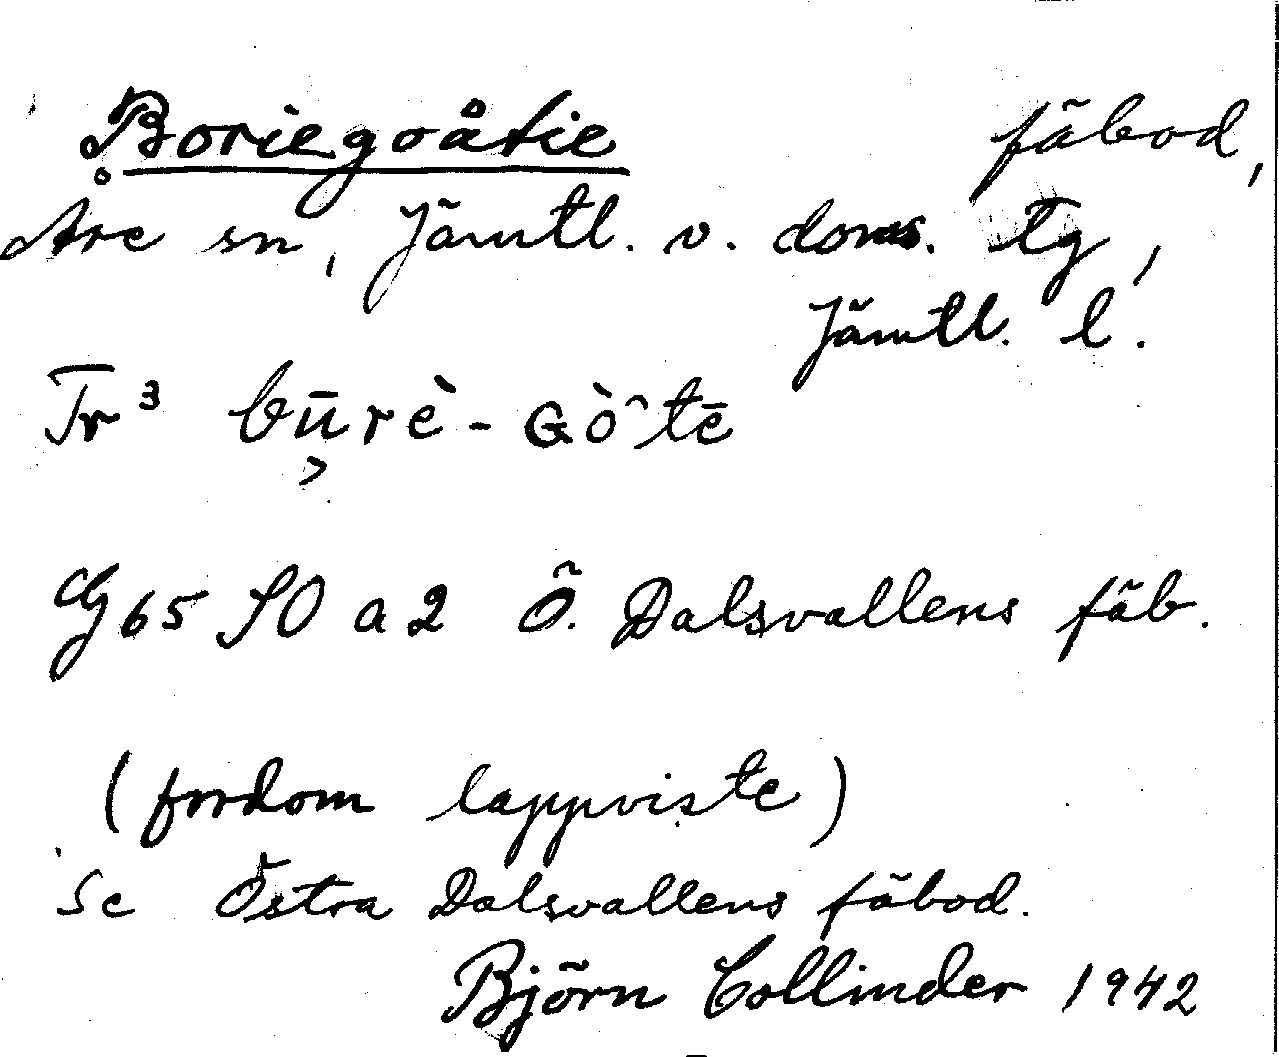 Boriegoåtie fäbod,
Åre sn, Jämtl. v. doms. tg,
Jämtl. l.
Tr³ bṳ̄rè-Gòˆtē
G65 SO a 2 Ö. Dalsvallens fäb.
(fordom lappviste)
Se Östra Dalsvallens fäbod.
Björn Collinder 1942